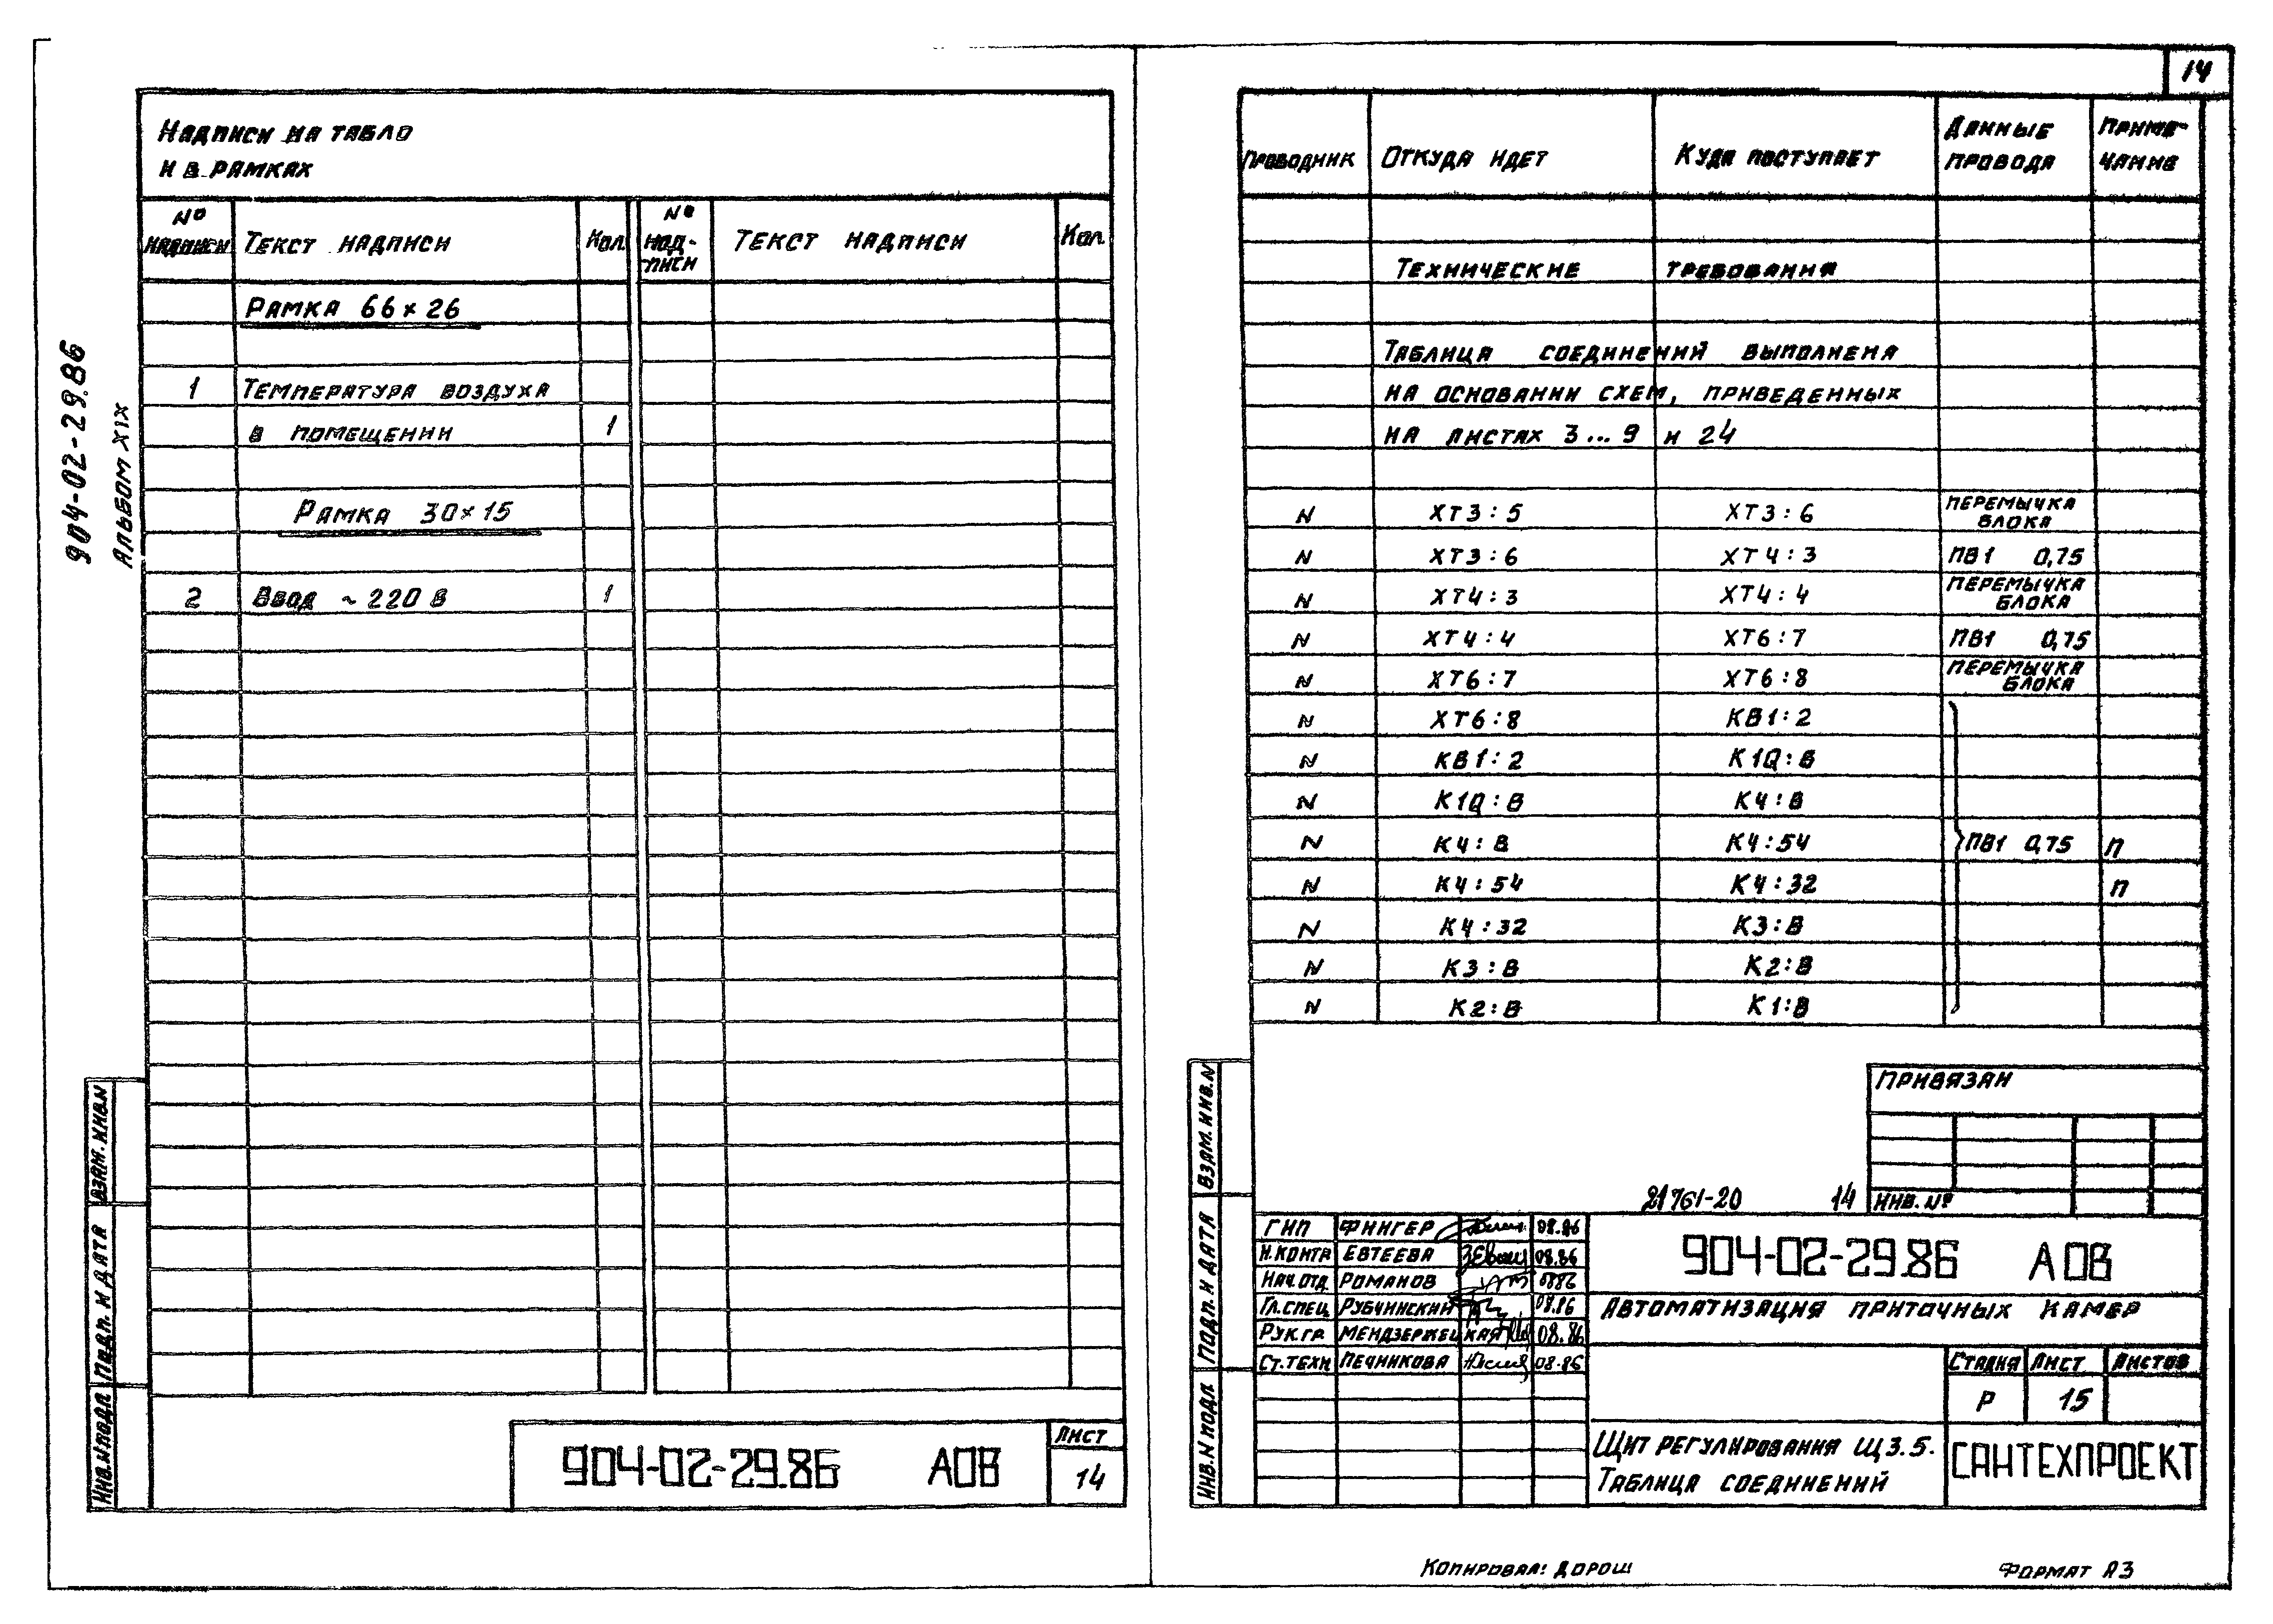 14
904-02-29.86
Альбом XIX
Надписи на табло
и в рамках
№ надписи Текст надписи Кол. № над-писи Текст надписи Кол.
Рамка 66×26
1 Температура воздуха
в помещении 1
Рамка 30×15
2 Ввод ~220 В 1
Взам. инв. N
Подп. и дата
Инв. N подл
904-02-29.86 АОВ
Лист
14
Проводник Откуда идет Куда поступает Данные провода Приме-чание
Технические требования
Таблица соединений выполнена
на основании схем, приведенных
на листах 3...9 и 24
N ХТ3:5 ХТ3:6 перемычка блока
N ХТ3:6 ХТ4:3 ПВ1 0,75
N ХТ4:3 ХТ4:4 перемычка блока
N ХТ4:4 ХТ6:7 ПВ1 0,75
N ХТ6:7 ХТ6:8 перемычка блока
N ХТ6:8 КВ1:2
N КВ1:2 К1Q:В
N К1Q:В К4:В
N К4:В К4:54 ПВ1 0,75 П
N К4:54 К4:32 П
N К4:32 К3:В
N К3:В К2:В
N К2:В К1:В
Привязан
Инв. №
21761-20 14
Взам. инв. N
Подп. и дата
Инв. N подл
ГИП Фингер 08.86
Н.контр Евтеева 08.86
Нач.отд Романов 0886
Гл.спец Рубчинский 08.86
Рук.гр Мендзержецкая 08.86
Ст.техн Печникова 08.86
904-02-29.86 АОВ
Автоматизация приточных камер
Стадия Лист Листов
Р 15
Щит регулирования Щ3.5.
Таблица соединений
САНТЕХПРОЕКТ
Копировал: Дорош
Формат А3